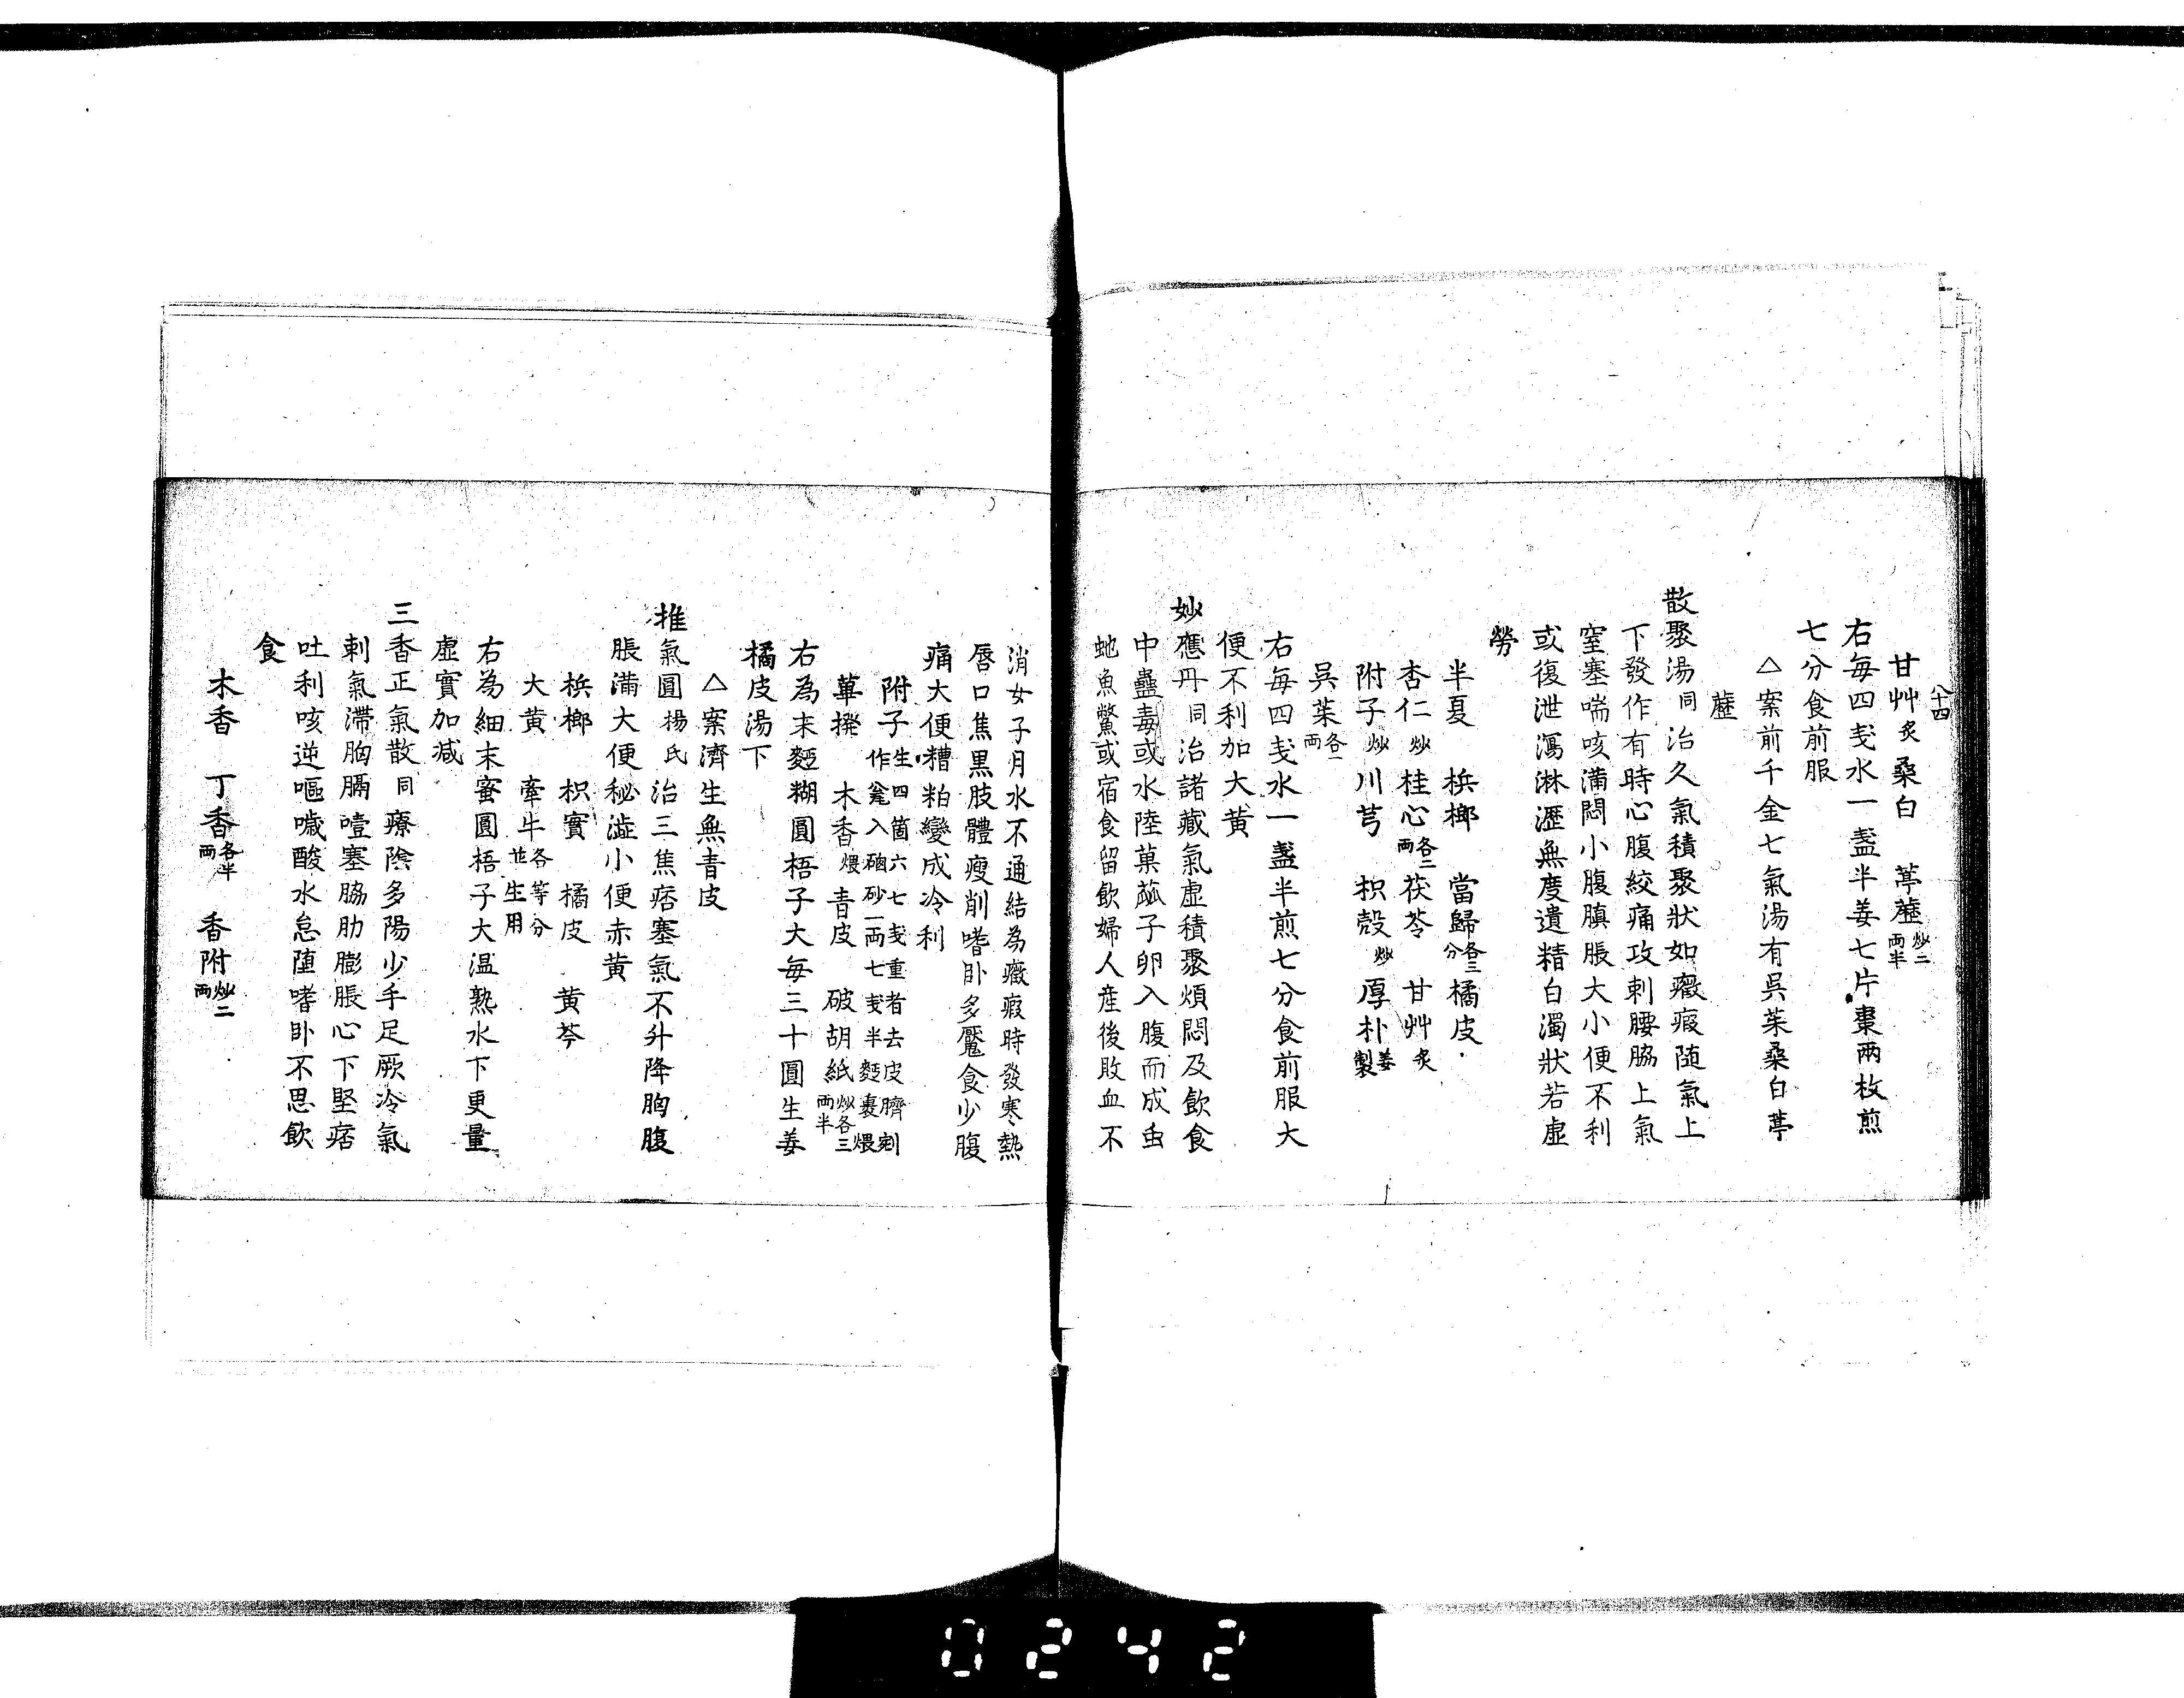 八十四
甘艸炙桑白 葶藶炒二兩半
右每四戔水一盞半姜七片棗兩枚煎
七分食前服
△案前千金七氣湯有吳茱桑白葶
藶
散聚湯同治久氣積聚狀如癥瘕随氣上
下發作有時心腹絞痛攻刺腰脇上氣
窒塞喘咳滿悶小腹䐜脹大小便不利
或復泄瀉淋瀝無度遺精白濁狀若虛
勞
半夏 梹榔 當歸各三分橘皮
杏仁炒桂心各二兩茯苓 甘艸炙
附子炒川芎 枳殼炒厚朴姜製
吳茱各一兩
右每四戔水一盞半煎七分食前服大
便不利加大黃
妙應丹同治諸藏氣虛積聚煩悶及飲食
中蠱毒或水陸菓蓏子卵入腹而成虫
虵魚鱉或宿食留飲婦人産後敗血不
消女子月水不通結為癥瘕時發寒熱
唇口焦黑肢體瘦削嗜卧多魘食少腹
痛大便糟粕變成冷利
附子生四箇六七戔重者去皮臍剜作瓮入硇砂一兩七戔半麪裹煨
蓽撥 木香煨青皮 破胡紙炒各三兩半
右為末麪糊圓梧子大每三十圓生姜
橘皮湯下
△案濟生無青皮
推氣圓楊氏治三焦痞塞氣不升降胸腹
脹滿大便秘澁小便赤黃
梹榔 枳實 橘皮 黃芩
大黃 牽牛各等分並生用
右為細末蜜圓梧子大温熟水下更量
虛實加減
三香正氣散同療陰多陽少手足厥冷氣
刺氣滯胸膈噎塞脇肋膨脹心下堅痞
吐利咳逆嘔噦酸水怠墮嗜卧不思飲
食
木香 丁香各半兩 香附炒二兩
0242